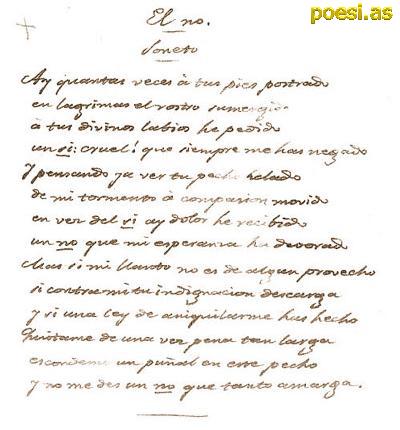 poesi.as
El no.
Soneto
Ay quantas veces à tus pies postrado
en lagrimas el rostro sumergido
à tus divinos labios he pedido
un si: cruel! que siempre me has negado
Y pensando ya ver tu pecho helado
de mi tormento à compasion movido
en vez del si ay dolor he recibido
un no que mi esperanza ha devorado
Mas si mi llanto no es de algun provecho
si contra mi tu indignacion descarga
y si una ley de aniquilarme has hecho
Quitame de una vez pena tan larga
escondeme un puñal en este pecho
y no me des un no que tanto amarga.